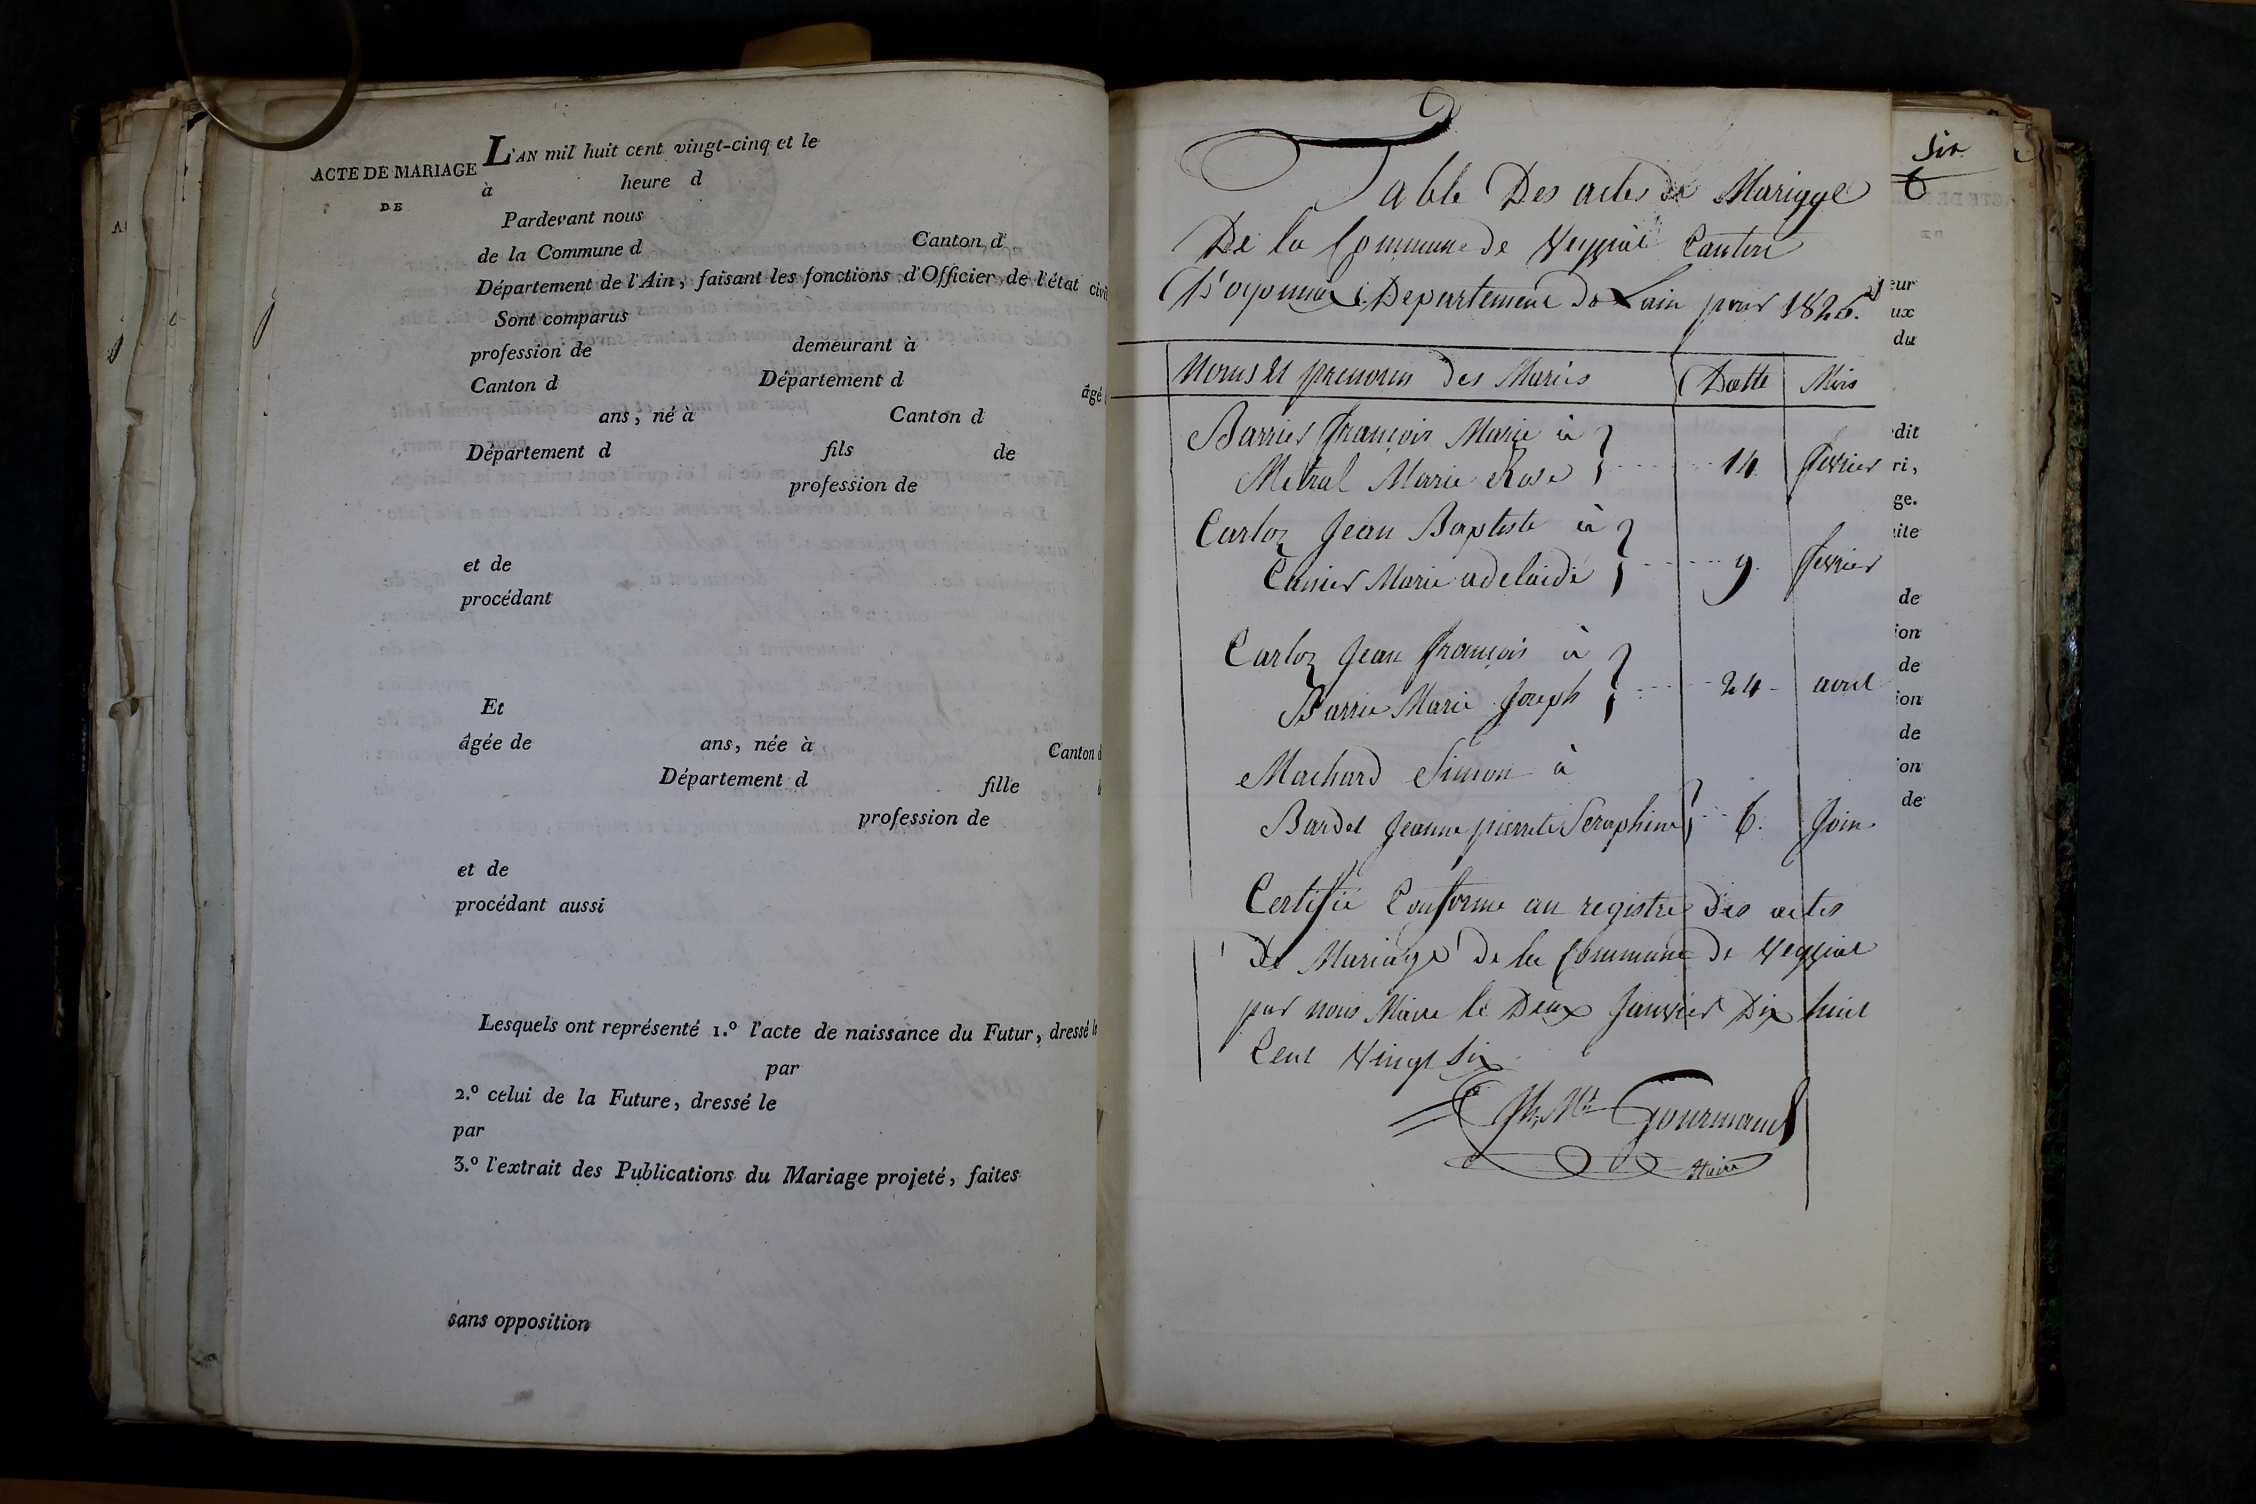 ACTE DE MARIAGE
DE
L'AN mil huit cent vingt-cinq et le
à heure d
Pardevant nous
de la Commune d Canton d
Département de l'Ain, faisant les fonctions d'Officier de l'état civil
Sont comparus
profession de demeurant à
Canton d Département d âgé
ans, né à Canton d
Département d fils de
profession de
et de
procédant
Et
âgée de ans, née à Canton d
Département d fille
profession de
et de
procédant aussi
Lesquels ont représenté 1.º l'acte de naissance du Futur, dressé le
par
2.º celui de la Future, dressé le
par
3.º l'extrait des Publications du Mariage projeté, faites
sans opposition
Table Des actes de Mariage
De la Commune de Veyziat Canton
D'oyonnax Departement de Lain pour 1825
Noms et prenoms des Mariés Datte Mois
Barrier françois Marie à
Metral Marie Rose 14 fevrier
Carloz Jean Baptiste à
Canier Marie adelaide 9 fevrier
Carloz Jean françois à
Barrie Marie Joseph 24 avril
Machard Simon à
Bardet Jeanne pierrete Seraphine 6. Join
Certifié Conforme au registre des actes
De Mariage de la Commune de Veyziat
par nous Maire le Deux Janvier Dix huit
Cent Vingt Six
Gourmand
Maire
Six
6
eur
ux
du
dit
ri,
ge.
ite
de
ion
de
ion
de
on
de